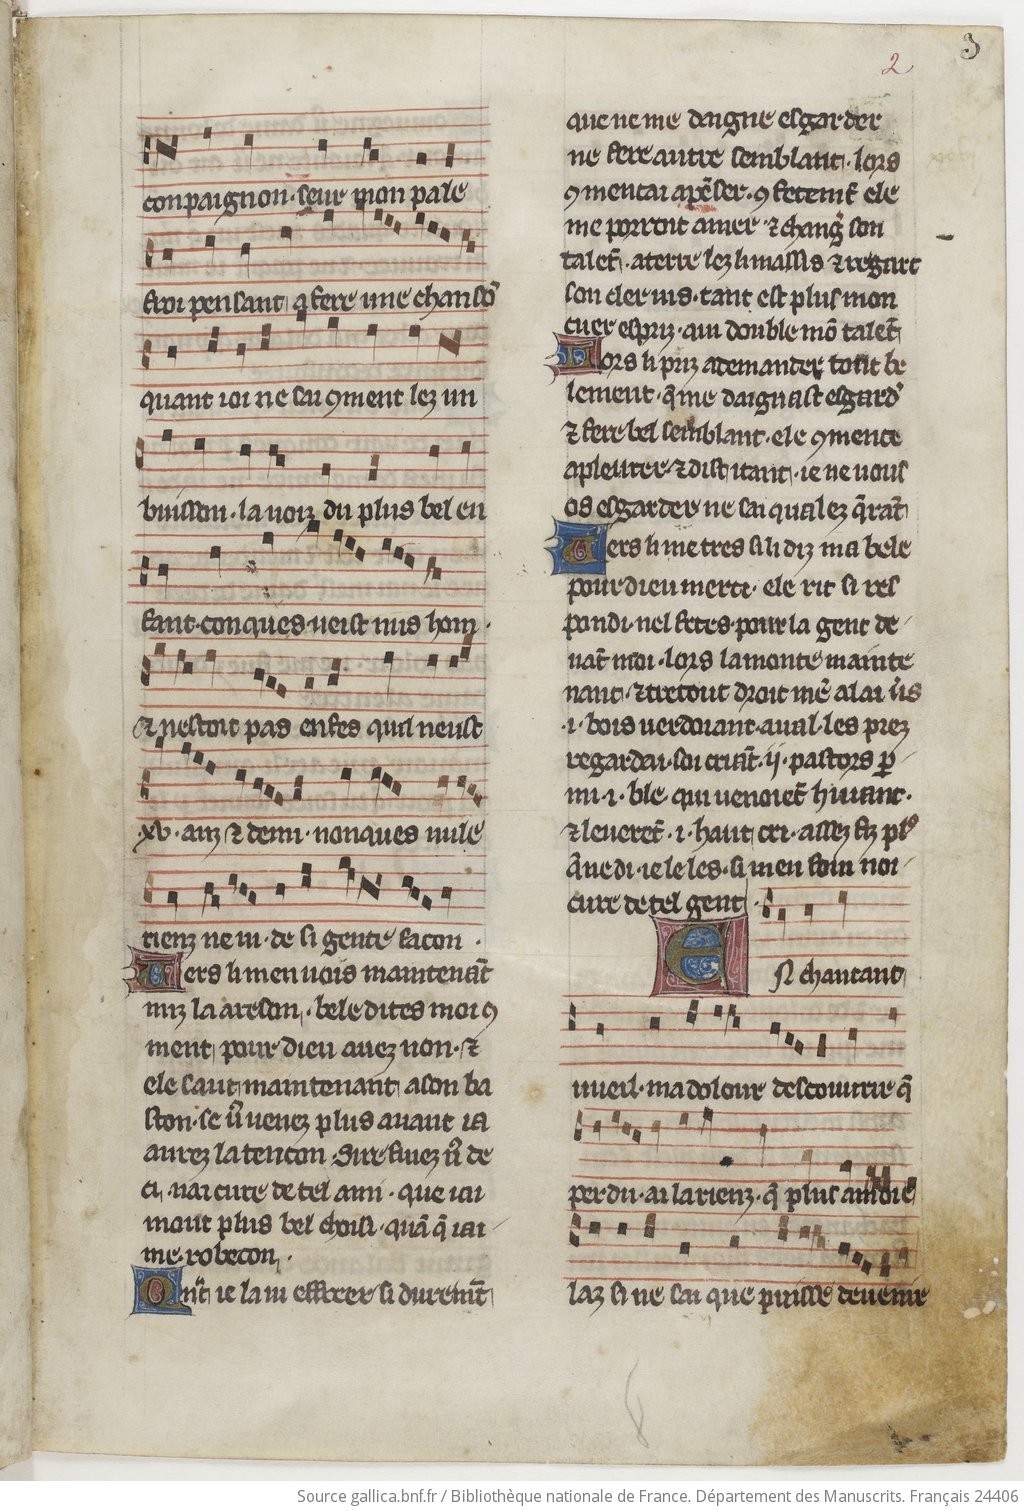 3
2
conpaignon· seur mon pale
froi pensant a fere une chancō
quant ioi ne sai ꝯment lez un
buisson· la uoiz du plus bel en
fant· conques ueist nus hom·
Et nestoit pas enfes quil neust
·xv· anz ⁊ demi· nonques nule
rienz ne ui· de si gente facon·
Uers li men uois maintenāt
mis la a reson· bele dites moi ꝯ
ment pour dieu auez non· ⁊
ele saut maintenant a son ba
ston· se uͦ uenez plus auant ia
aurez la tencon Sire fuiez uͦ de
ci· nai cure de tel ami· que iai
mout plus bel choisi· quā q̄ iai
me· robecon·
Qn̄t ie la ui effreer si durem̄t
que ne me daigne esgarder
ne fere autre semblant· lors
ꝯmencai a pēser· ꝯfetem̄t ele
me porroit amer ⁊ chang̾ son
talēt· a terre lez li massis ⁊ regart
son cler uis· tant est plus mon
cuer espriz· qui double mō talēt
Lors li priz a demander tout be
lement· q̄ me daignast esgard̾
⁊ fere bel semblant· ele ꝯmence
a pleurer ⁊ dist itant· ie ne uous
os esgarder ne sai qualez q̄rāt
Uers li me tres si li diz ma bele
pour dieu merci· ele rit si res
pondi· nel fetes· pour la gent de
uāt moi· lors la monte mainte
nant· ⁊ trestout droit mē alai ūs
·i· bois uerdoiant· aual les prez
regardai· soi criāt· ij· pastors p̱
mi· i· ble qui uenoiēt huiant·
⁊ leuerēt· i· haut cri· assez fiz plꝰ
q̄ ne di· ie le les· si men foui noi
cure de tel gent·
En chantant
uueil· ma dolour descouurir q̄
perdu· ai la rienz· q̄ plus amoie
laz si ne sai que puisse deuenir
Source gallica.bnf.fr / Bibliothèque nationale de France. Département des Manuscrits. Français 24406